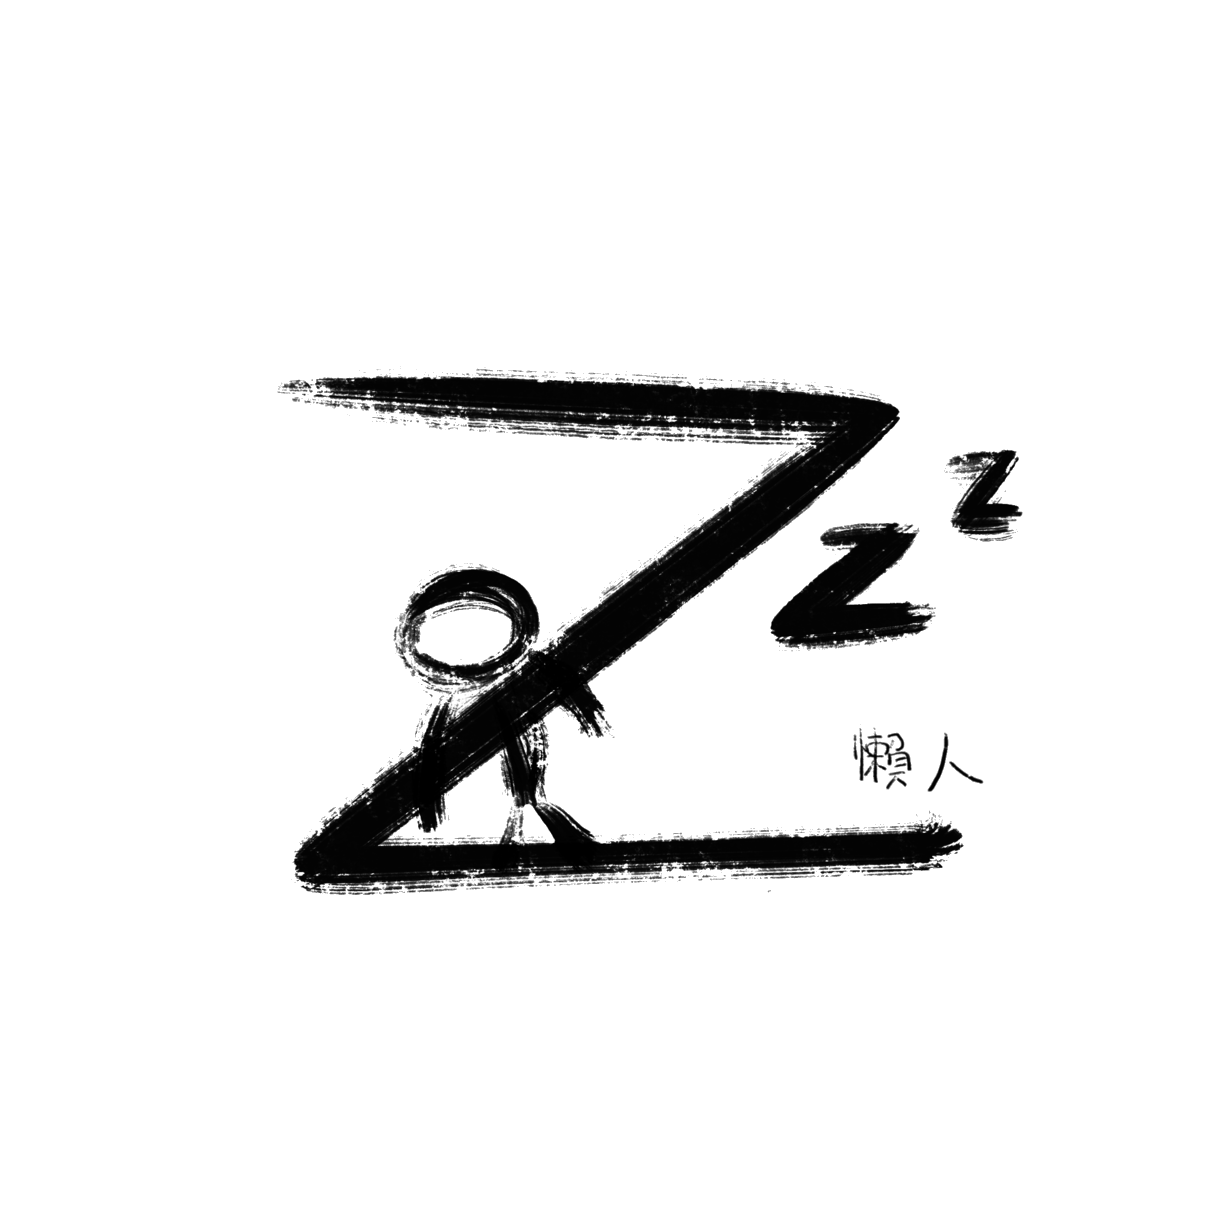 Z
z
z
懶人